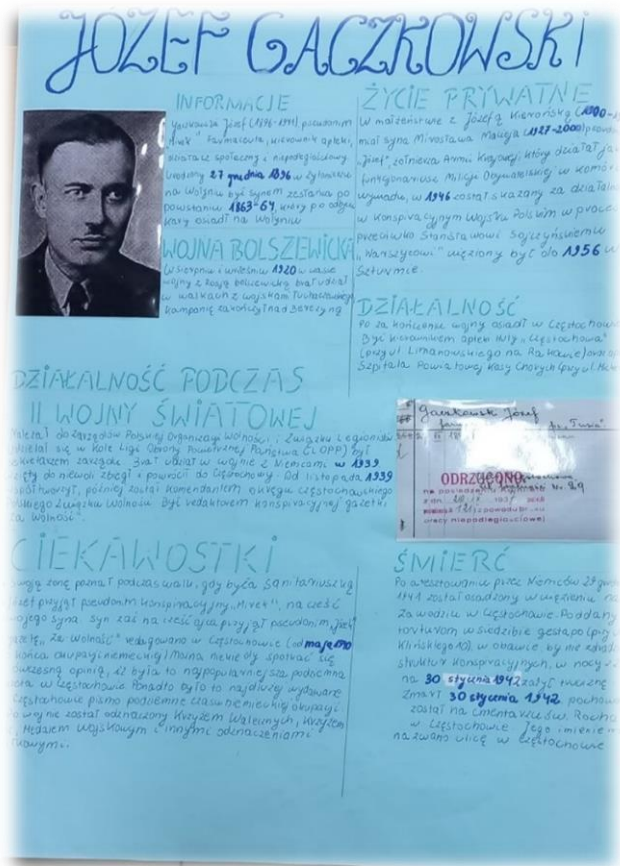 JÓZEF GACZKOWSKI
INFORMACJE
Józef (1896-1942) pseudonim
"Mirek" farmaceuta, kierownik apteki,
społeczny i niepodległościowy
Urodzony 27 grudnia 1896 w Żytomierz
na Wołyniu był synem zesłańca po
powstaniu 1863-64, który po odbyciu
kary osiadł na Wołyniu
WOJNA BOLSZEWICKA
W sierpniu i wrześniu 1920 w czasie
wojny z Rosją bolszewicką brał udział
w walkach z wojskami Tuchaczewskiego
Kampanię zakończył nad Berezyną
ŻYCIE PRYWATNE
W małżeństwie z Józefą Kierońską (1900-19
miał syna Mirosława Macieja (1927-2000)
"Józef", żołnierza Armii Krajowej, który działał ja
funkcjonariusz Milicji Obywatelskiej w komór
wywiadu, w 1946 został skazany za działaln
w Konspiracyjnym Wojsku Polskim w proce
przeciwko Stanisławowi Sojczyńskiemu
"Warszycowi" więziony był do 1956 w
Sztumie.
DZIAŁALNOŚĆ
Po za kończeniu wojny osiadł w Częstochow
Był kierownikiem aptek Huty "Częstochowa"
(przy ul Limanowskiego na Rakowie) oraz ap
Szpitala Powiatowej Kasy Chorych (przy ul.
DZIAŁALNOŚĆ PODCZAS
II WOJNY ŚWIATOWEJ
Należał do zarządów Polskiej Organizacji Wolności i Związku Legionistów
udzielał się w Kole Ligi Obrony Powietrznej Państwa (LOPP) był
sekretarzem zarządu. Brał udział w wojnie z Niemcami w 1939
wzięty do niewoli zbiegł i powrócił do Częstochowy. Od listopada 1939
współtworzył, później został komendantem okręgu częstochowskiego
Związku Wolności. Był redaktorem konspiracyjnej gazetki
"Za Wolność".
Gaczkowski Józef
ODRZUCONO
CIEKAWOSTKI
Swoją żonę poznał podczas walk, gdy była sanitariuszką
Józef przyjął pseudonim konspiracyjny "Mirek", na cześć
swojego syna. Syn zaś na cześć ojca przyjął pseudonim "Józef"
gazetkę "Za Wolność" redagowano w Częstochowie (od
końca okupacji niemieckiej) Można niekiedy spotkać się
opinią, iż była to najpopularniejsza podziemna
w Częstochowie Ponadto było to najdłużej wydawane
Częstochowie pismo podziemne czasu niemieckiej okupacji
Po wojnie został odznaczony Krzyżem Walecznych, Krzyżem
Medalem Wojskowym i innymi odznaczeniami
ŚMIERĆ
Po aresztowaniu przez Niemców 29
1941 został osadzony w więzieniu na
Zawodziu w Częstochowie. Poddany
torturom w siedzibie gestapo (przy
Kilińskiego 10), w obawie by nie zdradz
struktur konspiracyjnych, w nocy
na 30 stycznia 1942 zażył truciznę
Zmarł 30 stycznia 1942 pochowa
został na cmentarzu św. Rocha
w Częstochowie Jego imieniem
nazwano ulicę w Częstochowie